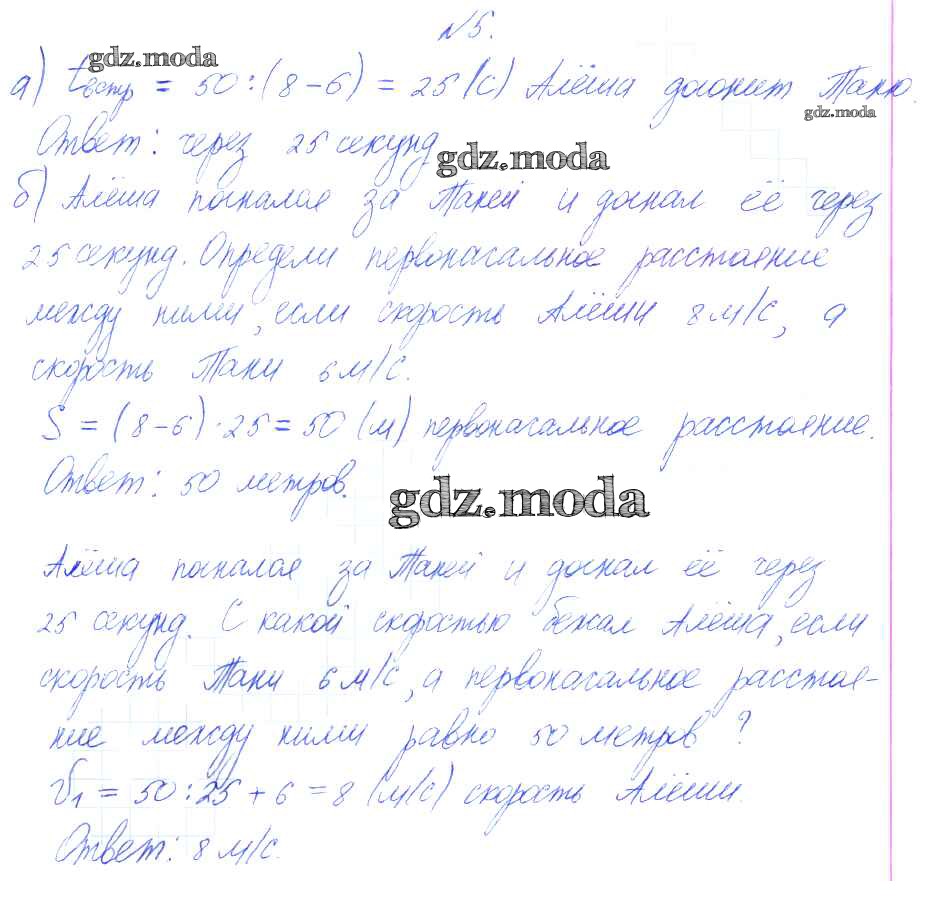 №5.
gdz.moda
а) tвстр = 50 : (8 – 6) = 25 (с) Алёша догонит Таню.
gdz.moda
Ответ: через 25 секунд
gdz.moda
б) Алёша погнался за Таней и догнал её через
25 секунд. Определи первоначальное расстояние
между ними, если скорость Алёши 8 м/с, а
скорость Тани 6 м/с.
S = (8 – 6) · 25 = 50 (м) первоначальное расстояние.
Ответ: 50 метров.
gdz.moda
Алёша погнался за Таней и догнал её через
25 секунд. С какой скоростью бежал Алёша, если
скорость Тани 6 м/с, а первоначальное расстоя-
ние между ними равно 50 метров?
V1 = 50 : 25 + 6 = 8 (м/с) скорость Алёши.
Ответ: 8 м/с.